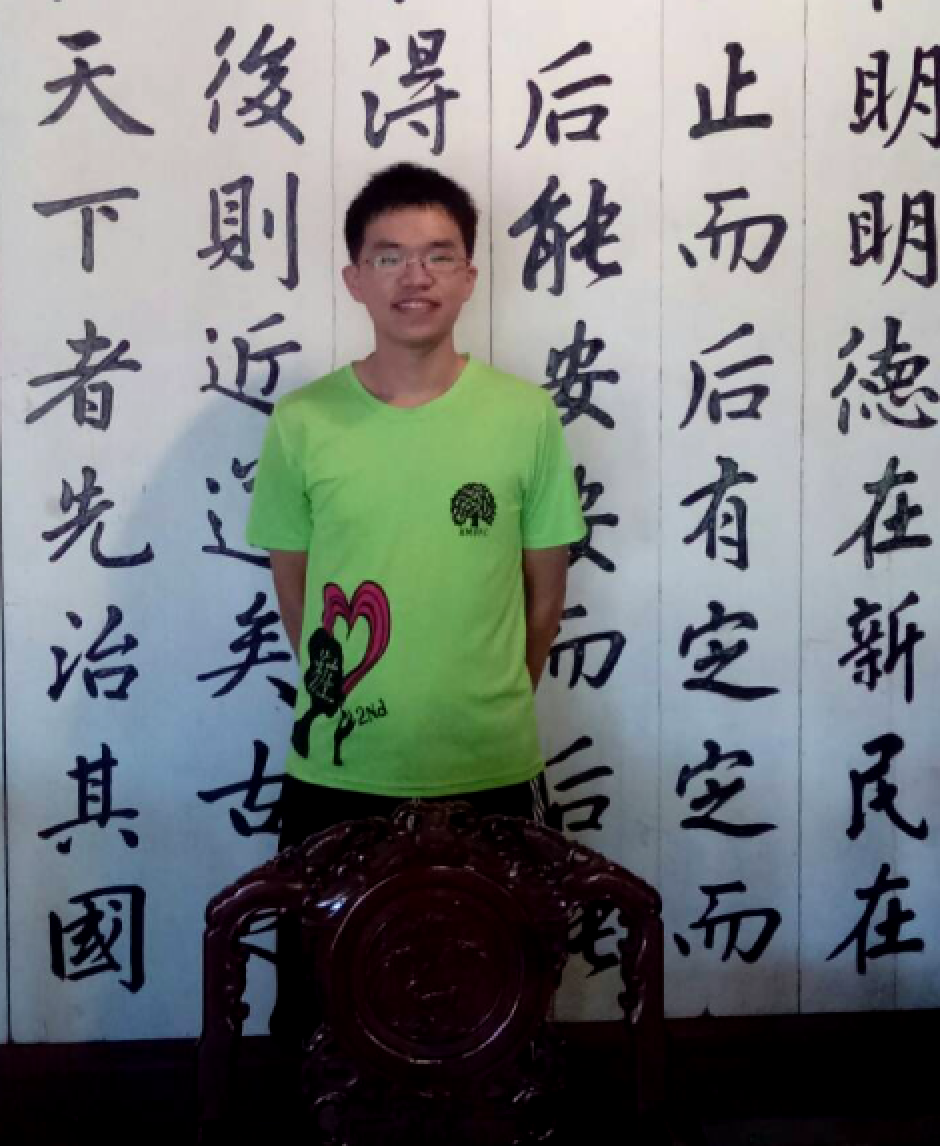 明明德在新民在
止而后有定定而
后能安安而后能
得
後則近道矣古
天下者先治其國
2Nd